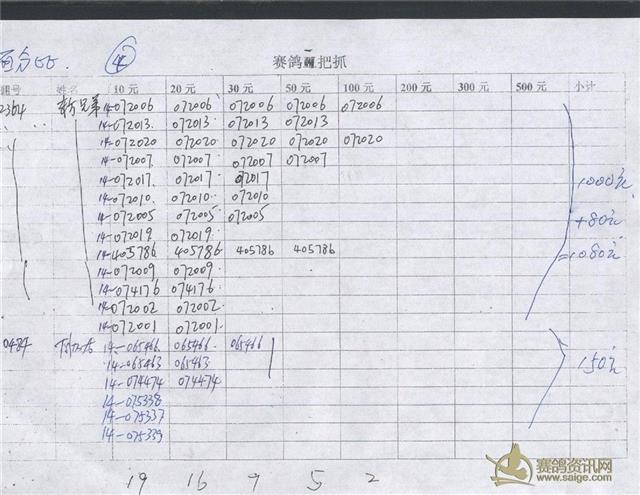 百分比. ④ 赛鸽 把抓
棚号 姓名 10 元 20 元 30 元 50 元 100 元 200 元 300 元 500 元 小计
2364 兄弟 14-072006 072006 072006 072006 072006
14-072013. 072013. 072013 072013
14-072020 072020 072020 072020 072020
14-072007. 072007. 072007 072007
14-072017. 072017. 072017
14-072010. 072010. 072010
14-072005 072005 072005
14-072019 072019.
14-405786 405786 405786 405786
14-072009 072009.
14-074176 074176.
14-072002 072002.
14-072001 072001.
1000元
+80元
=1080元
0484 14-065466 065466. 065466
14-065463 065463
14-074474 074474
14-075338
14-075337
14-075339
150元
19 16 9 5 2
赛鸽资讯网
www.saige.com